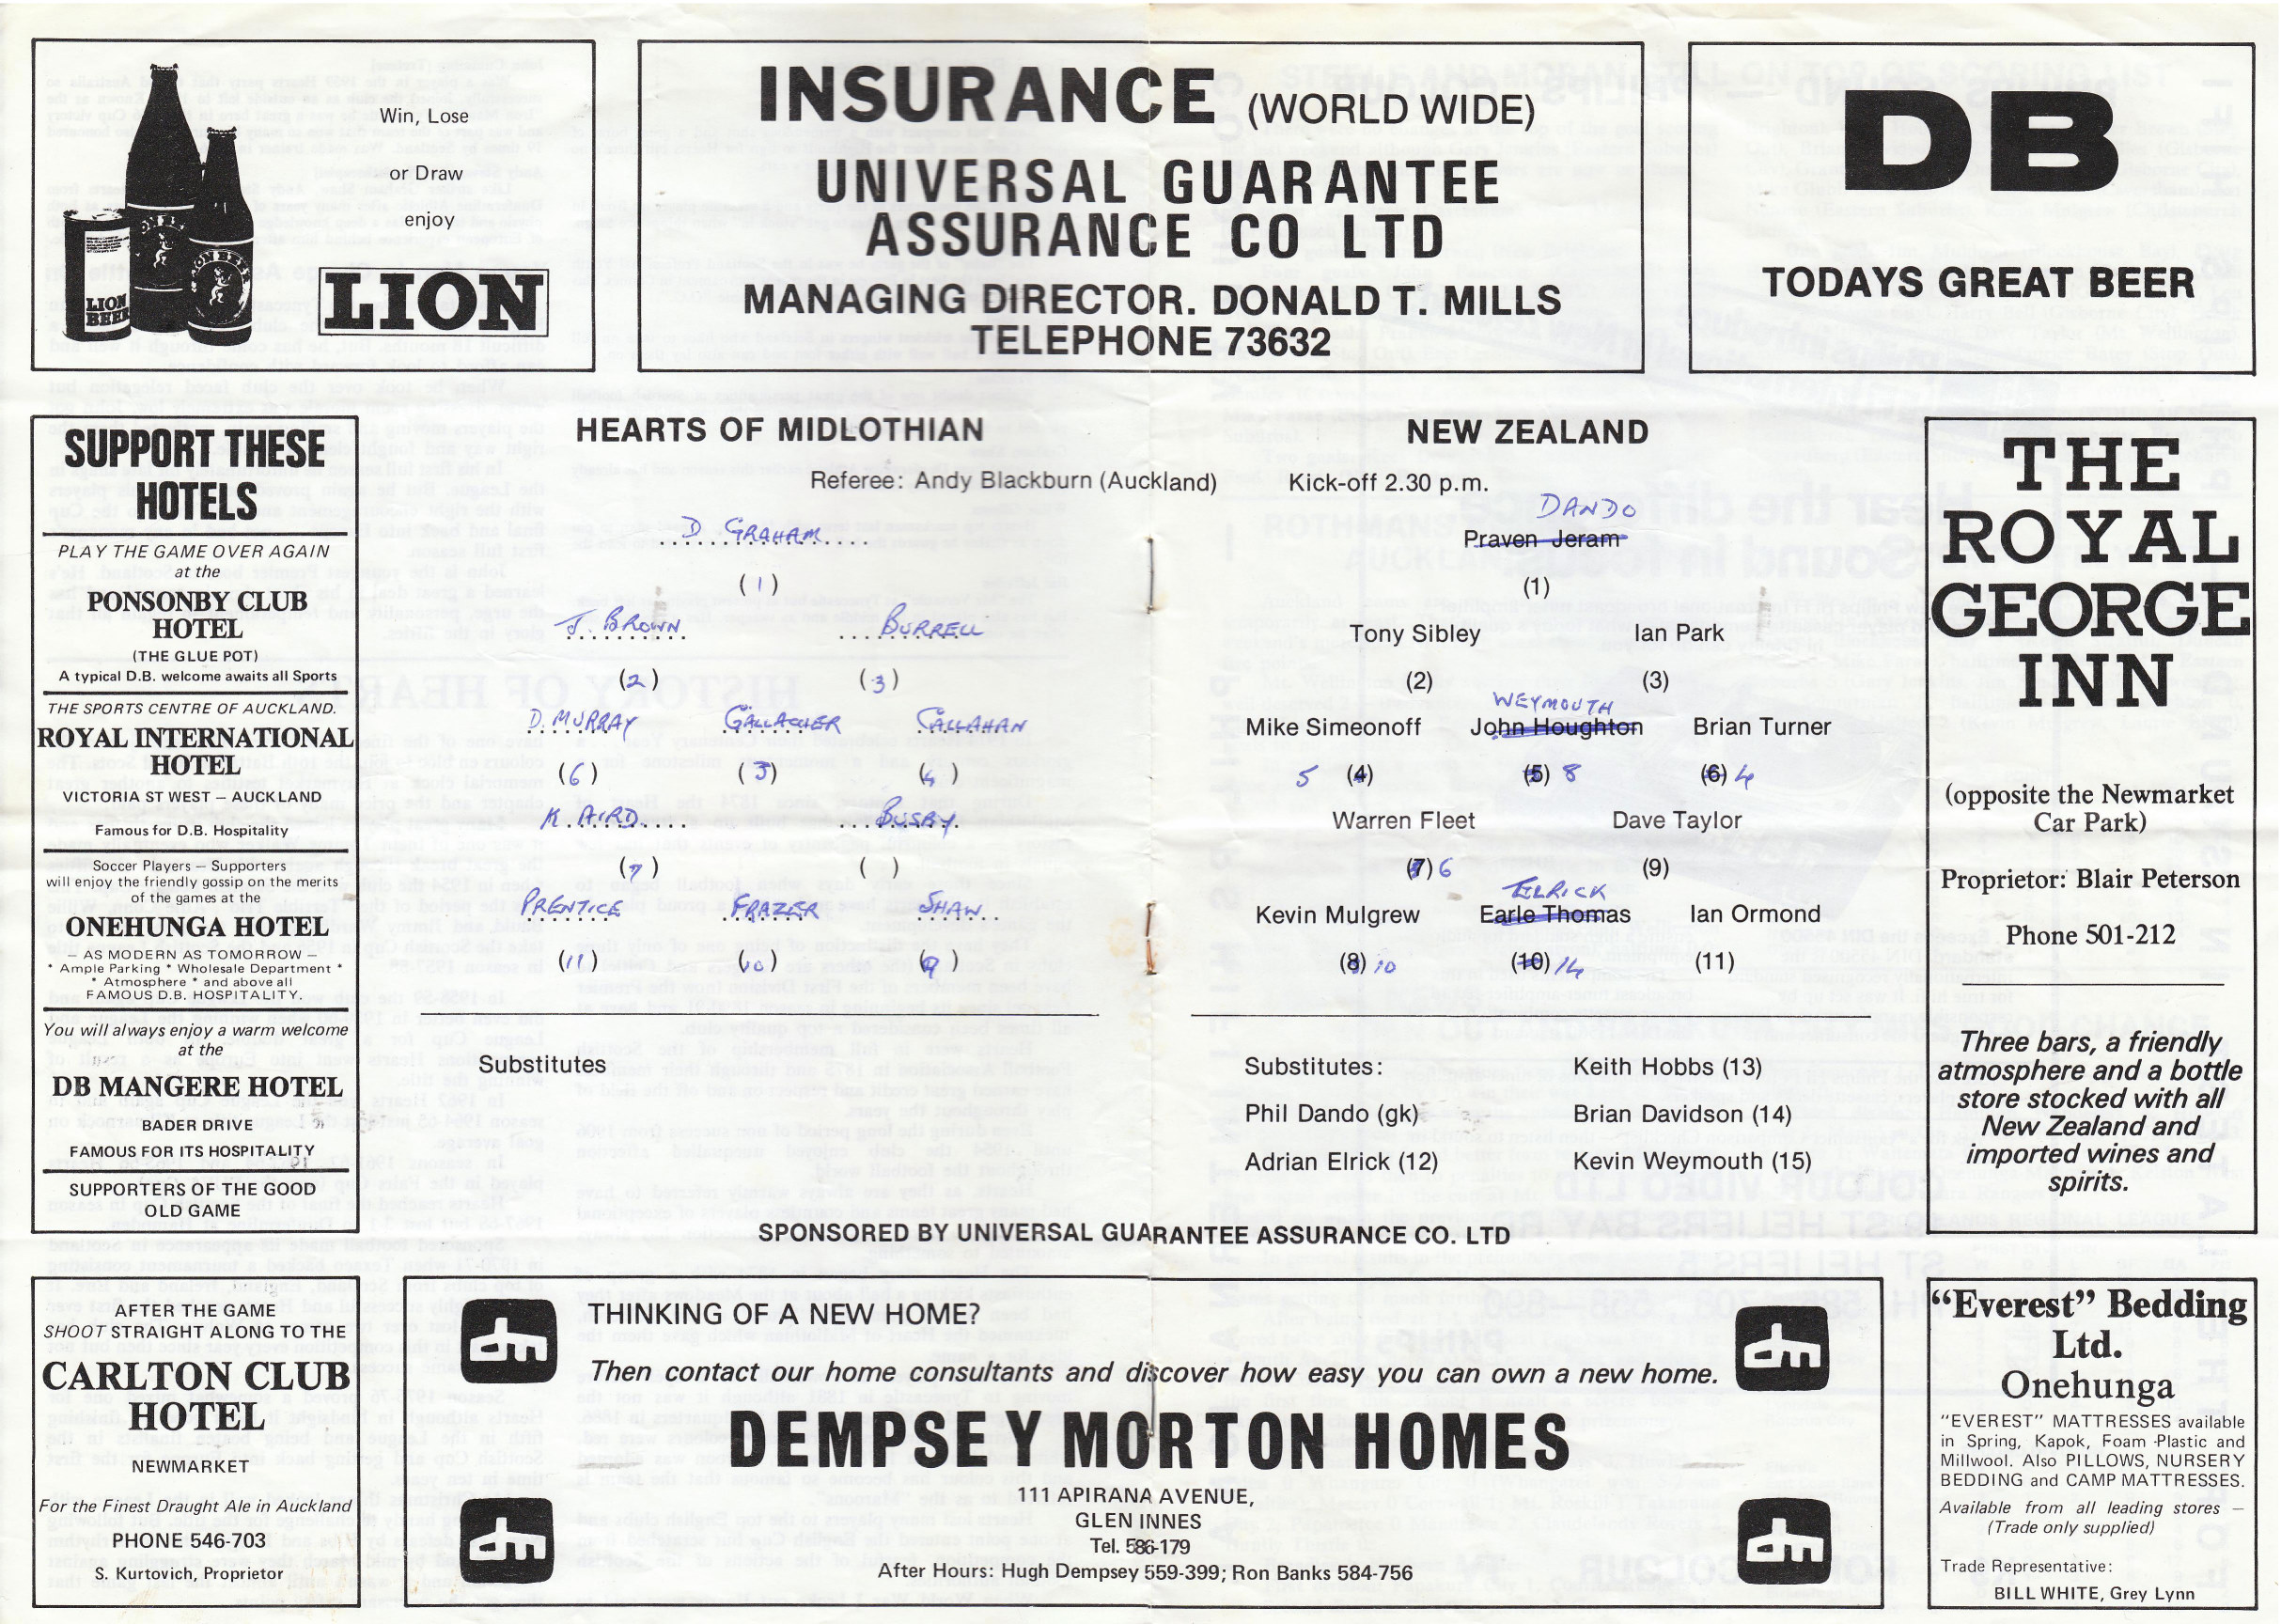 Win, Lose
or Draw
enjoy
LION
LION
BEER
INSURANCE (WORLD WIDE)
UNIVERSAL GUARANTEE
ASSURANCE CO LTD
MANAGING DIRECTOR. DONALD T. MILLS
TELEPHONE 73632
DB
TODAYS GREAT BEER
SUPPORT THESE
HOTELS
PLAY THE GAME OVER AGAIN
at the
PONSONBY CLUB
HOTEL
(THE GLUE POT)
A typical D.B. welcome awaits all Sports
THE SPORTS CENTRE OF AUCKLAND.
ROYAL INTERNATIONAL
HOTEL
VICTORIA ST WEST – AUCKLAND
Famous for D.B. Hospitality
Soccer Players – Supporters
will enjoy the friendly gossip on the merits
of the games at the
ONEHUNGA HOTEL
– AS MODERN AS TOMORROW –
* Ample Parking * Wholesale Department *
* Atmosphere * and above all
FAMOUS D.B. HOSPITALITY.
You will always enjoy a warm welcome
at the
DB MANGERE HOTEL
BADER DRIVE
FAMOUS FOR ITS HOSPITALITY
SUPPORTERS OF THE GOOD
OLD GAME
HEARTS OF MIDLOTHIAN
NEW ZEALAND
Referee: Andy Blackburn (Auckland) Kick-off 2.30 p.m.
D GRAHAM
(1)
J. BROWN BURRELL
(2) (3)
D. MURRAY GALLACHER CALLAHAN
(6) (3) (4)
K. AIRD BUSBY
(7) ( )
PRENTICE FRAZER SHAW
(11) (10) (9)
Substitutes
DANDO
Praven Jeram
(1)
Tony Sibley Ian Park
(2) (3)
WEYMOUTH
Mike Simeonoff John Houghton Brian Turner
5 (4) (5) 8 (6) 4
Warren Fleet Dave Taylor
(7) 6 (9)
ELRICK
Kevin Mulgrew Earle Thomas Ian Ormond
(8) 10 (10) 14 (11)
Substitutes: Keith Hobbs (13)
Phil Dando (gk) Brian Davidson (14)
Adrian Elrick (12) Kevin Weymouth (15)
SPONSORED BY UNIVERSAL GUARANTEE ASSURANCE CO. LTD
THE
ROYAL
GEORGE
INN
(opposite the Newmarket
Car Park)
Proprietor: Blair Peterson
Phone 501-212
Three bars, a friendly
atmosphere and a bottle
store stocked with all
New Zealand and
imported wines and
spirits.
AFTER THE GAME
SHOOT STRAIGHT ALONG TO THE
CARLTON CLUB
HOTEL
NEWMARKET
For the Finest Draught Ale in Auckland
PHONE 546-703
S. Kurtovich, Proprietor
THINKING OF A NEW HOME?
Then contact our home consultants and discover how easy you can own a new home.
DEMPSEY MORTON HOMES
111 APIRANA AVENUE,
GLEN INNES
Tel. 586-179
After Hours: Hugh Dempsey 559-399; Ron Banks 584-756
"Everest" Bedding
Ltd.
Onehunga
"EVEREST" MATTRESSES available
in Spring, Kapok, Foam Plastic and
Millwool. Also PILLOWS, NURSERY
BEDDING and CAMP MATTRESSES.
Available from all leading stores –
(Trade only supplied)
Trade Representative:
BILL WHITE, Grey Lynn